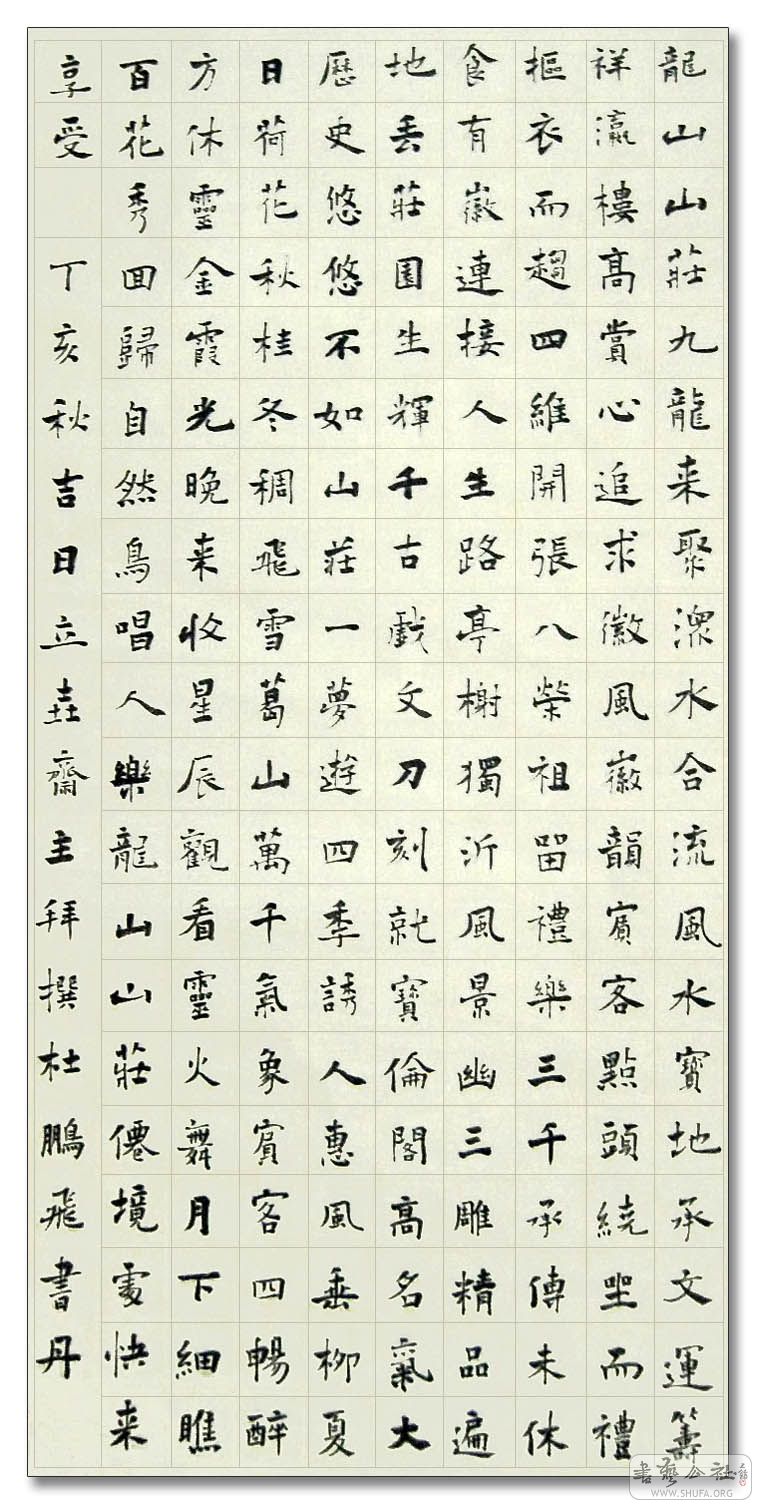 龍山山莊九龍来聚潨水合流風水寶地承文運籌
祥瀛樓高賞心追求徽風徽韻賓客點頭繞坐而禮
摳衣而趨四維開張八榮祖留禮樂三千承傳未休
食有徽連接人生路亭榭獨沂風景幽三雕精品遍
地丟莊园生輝千古戲文刀刻就寶倫閣高名氣大
歷史悠悠不如山莊一夢遊四季誘人惠風垂柳夏
日荷花秋桂冬稠飛雪葛山萬千氣象賓客四暢醉
方休靈金霞光晚来收星辰觀看靈火舞月下細瞧
百花秀回歸自然鳥唱人樂龍山山莊僊境處快来
享受 丁亥秋吉日立壵齋主拜撰杜鵬飛書丹
書藝公社
WWW.SHUFA.ORG